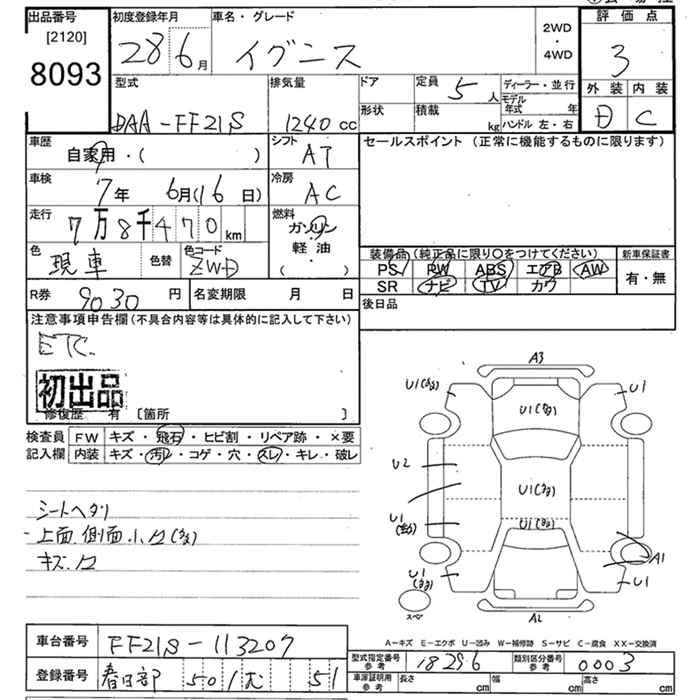 出品番号 [2120] 8093
初度登録年月 28 6月
車名・グレード イグニス
2WD・4WD
評価点 3
外装 内装
D C
型式 DAA-FF21S
排気量 1240cc
ドア
形状
定員 5人
積載 kg
ディーラー・並行
モデル年式 年
ハンドル 左・右
車歴 自家用・( )
シフト AT
セールスポイント (正常に機能するものに限ります)
車検 7年 6月(16日)
冷房 AC
走行 7万8千470km
燃料 ガソリン・軽油 ( )
色 現車
色替
色コード ZWD
装備品(純正品に限り〇をつけてください)
PS PW ABS エアB AW
SR ナビ TV カワ
新車保証書 有・無
R券 9030円
名変期限 月 日
後日品
注意事項申告欄(不具合内容等は具体的に記入して下さい)
ETC.
初出品
修復歴 有 [箇所 ]
検査員記入欄
FW キズ・飛石・ヒビ割・リペア跡・×要
内装 キズ・汚レ・コゲ・穴・スレ・キレ・破レ
シートヘタリ
上面、側面
キズ
A3
U1
U1
U1
U2
U1
U1
U1
U1
A1
U1
U1
スペア
A2
A-キズ E-エクボ U-凹み W-補修跡 S-サビ C-腐食 XX-交換済
車台番号 FF21S-113207
登録番号 春日部 501 む 51
型式指定番号 参考 18296
類別区分番号 参考 0003
車庫証明用 参考 長さ cm 幅 cm 高さ cm